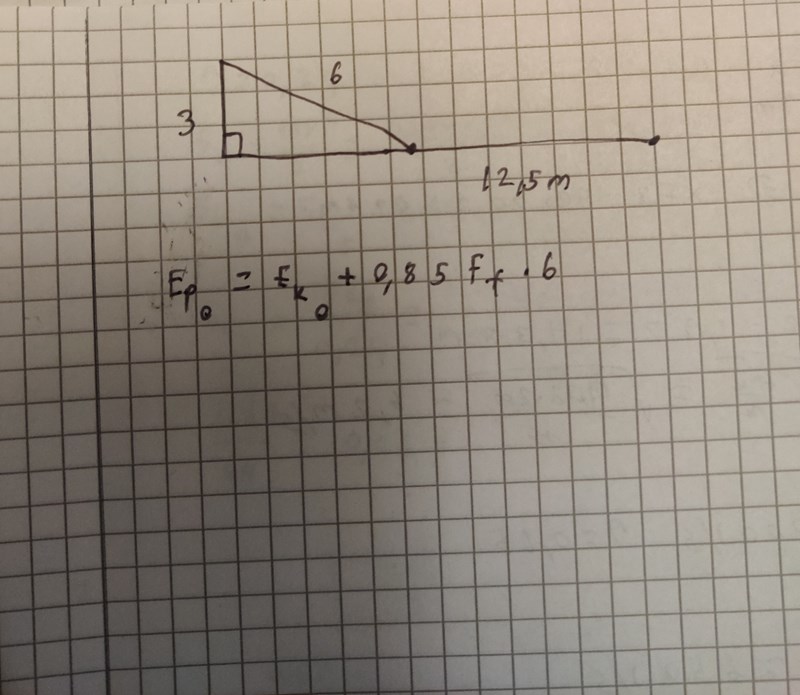 6
3
12,5m
Ep₀ = Ek₀ + 0,85 Ff · 6